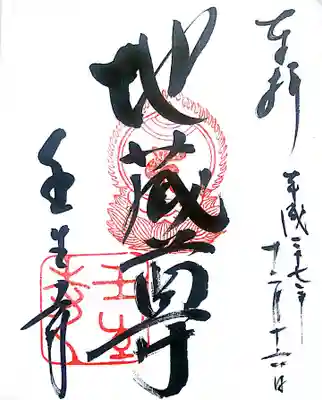 奉拝
平成二十七年
十二月十六日
地蔵尊
壬生寺